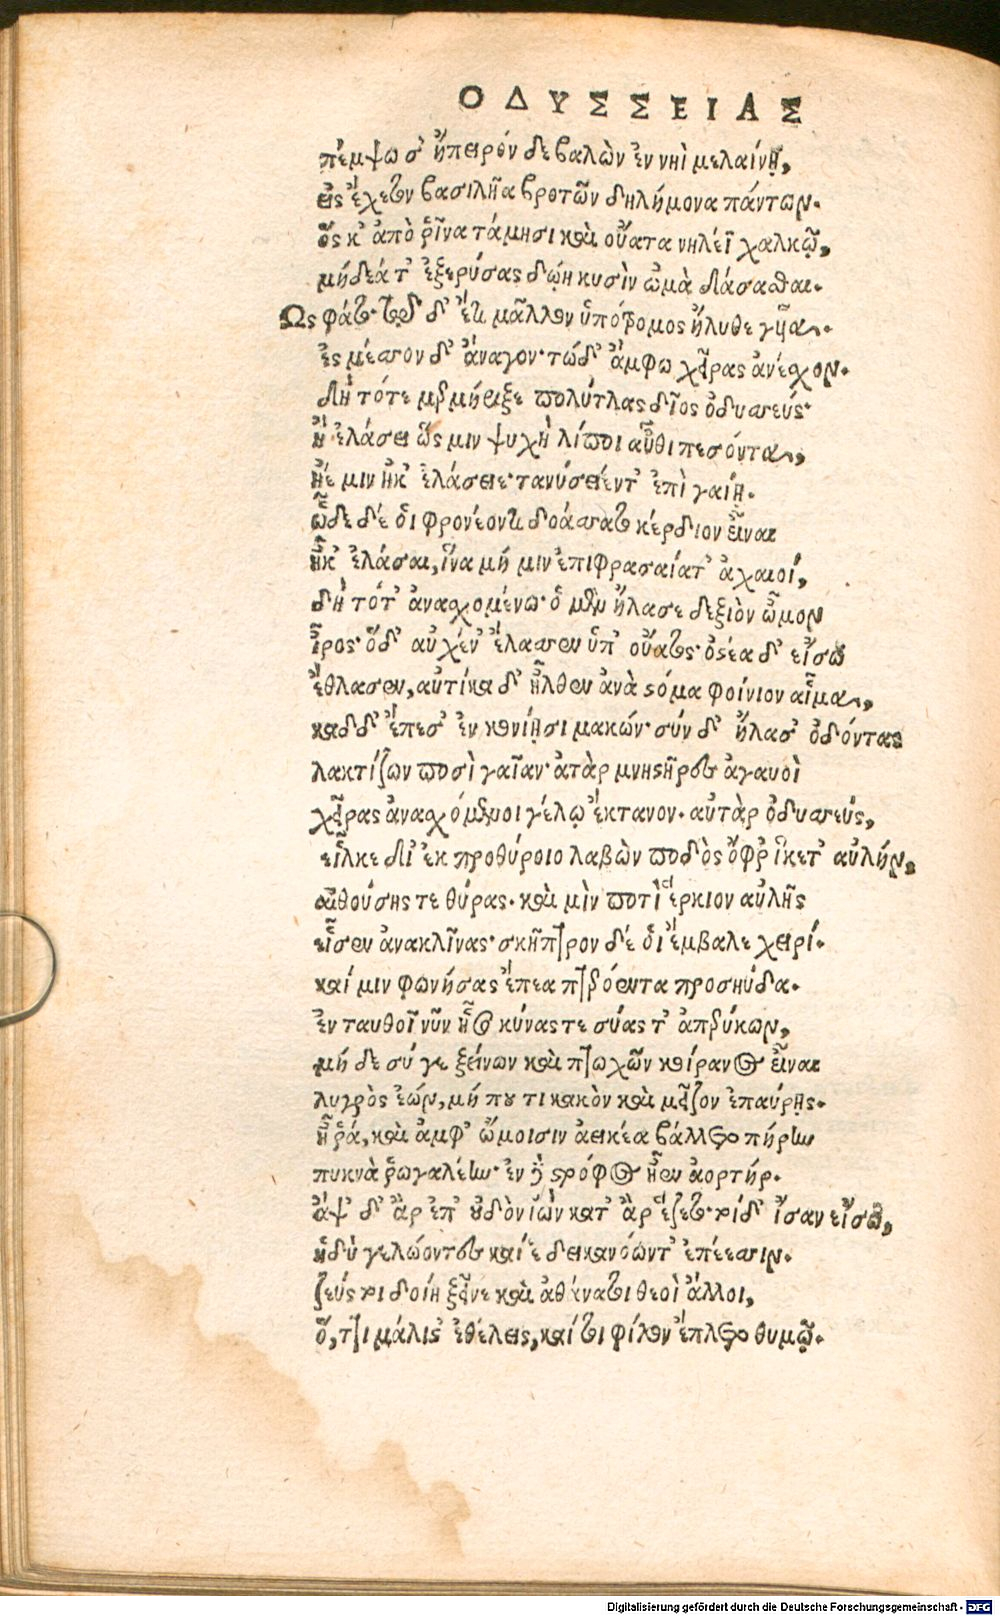 ΟΔΥΣΣΕΙΑΣ
πέμψω σ' ἤπειρόν δε βαλὼν ἐν νηὶ μελαίνῃ,
εἰς ἔχετον βασιλῆα βροτῶν δηλήμονα πάντων.
ὅς κ' ἀπὸ ῥῖνα τάμησι καὶ οὔατα νηλέϊ χαλκῷ,
μήδεά τ' ἐξερύσας δώῃ κυσὶν ὠμὰ δάσασθαι.
Ὣς φάτο· τῷ δ' ἔτι μᾶλλον ὑπότρομος ἤλυθε γυῖα.
ἐς μέσσον δ' ἄναγον· τὼ δ' ἄμφω χεῖρας ἀνέσχον.
Δὴ τότε μερμήριξε πολύτλας δῖος ὀδυσσεύς·
ἢ ἐλάσει ὥς μιν ψυχὴ λίποι αὖθι πεσόντα,
ἠέ μιν ἦκ' ἐλάσειε· τανύσειέντ' ἐπὶ γαίῃ.
ὧδε δέ ὁι φρονέοντι δοάσσατο κέρδιον εἶναι
ἦκ' ἐλάσαι, ἵνα μή μιν ἐπιφρασαίατ' ἀχαιοί,
δὴ τότ' ἀνασχομένω· ὁ μὲν ἤλασε δεξιὸν ὦμον
ἶρος· ὅδ' αὐχέν' ἔλασσεν ὑπ' οὔατος· ὀστέα δ' εἴσω
ἔθλασεν, αὐτίκα δ' ἦλθεν ἀνὰ στόμα φοίνιον αἷμα,
καδδ' ἔπεσ' ἐν κονίῃσι μακών· σύν δ' ἤλασ' ὀδόντας
λακτίζων ποσὶ γαῖαν· ἀτὰρ μνηστῆρες ἀγαυοὶ
χεῖρας ἀνασχόμενοι γέλῳ ἔκτανον. αὐτὰρ ὀδυσσεύς,
εἷλκε δι' ἐκ προθύροιο λαβὼν ποδὸς ὄφρ' ἵκετ' αὐλήν,
αἰθούσης τε θύρας. καὶ μὶν ποτὶ ἑρκίον αὐλῆς
εἷσεν ἀνακλῖνας· σκῆπτρον δέ ὁι ἔμβαλε χειρί.
καί μιν φωνήσας ἔπεα πτερόεντα προσηύδα.
ἐνταυθοῖ νῦν ἧσο κύνας τε σύας τ' ἀπερύκων,
μὴ δε σύ γε ξείνων καὶ πτωχῶν κοίρανος εἶναι
λυγρὸς ἐών, μή που τι κακὸν καὶ μεῖζον ἐπαύρῃς.
ἦ ῥά, καὶ ἀμφ' ὤμοισιν ἀεικέα βάλλετο πήρην
πυκνὰ ῥωγαλέην· ἐν δὲ στρόφος ἦεν ἀορτήρ.
ἂψ' δ' ἂρ ἐπ' οὐδὸν ἰὼν κατ' ἂρ ἕζετο· τοὶ δ' ἴσαν εἴσω,
ἡδὺ γελώοντες καί ἑ δεικανόωντ' ἐπέεσσιν.
ζεύς τοι δοίη ξεῖνε καὶ ἀθάνατοι θεοὶ ἄλλοι,
ὅ,ττι μάλιστ' ἐθέλεις, καί τοι φίλον ἔπλετο θυμῷ.
Digitalisierung gefördert durch die Deutsche Forschungsgemeinschaft - DFG